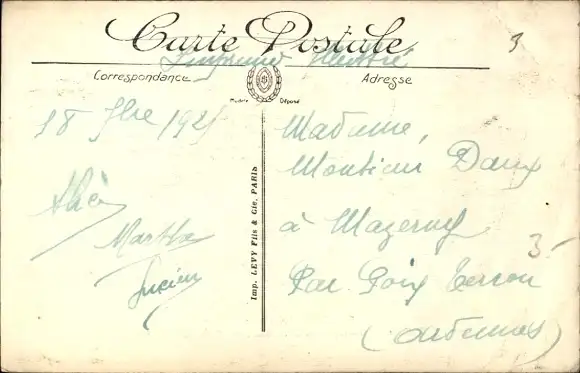 Carte Postale
Imprimé illustré
Correspondance
Adresse
Modèle Déposé
3
18 1921
Madame,
Monsieur
à Mazerny
Par Poix Terron
(Ardennes)
Martha
Lucien
3
Imp. LEVY Fils & Cie, PARIS